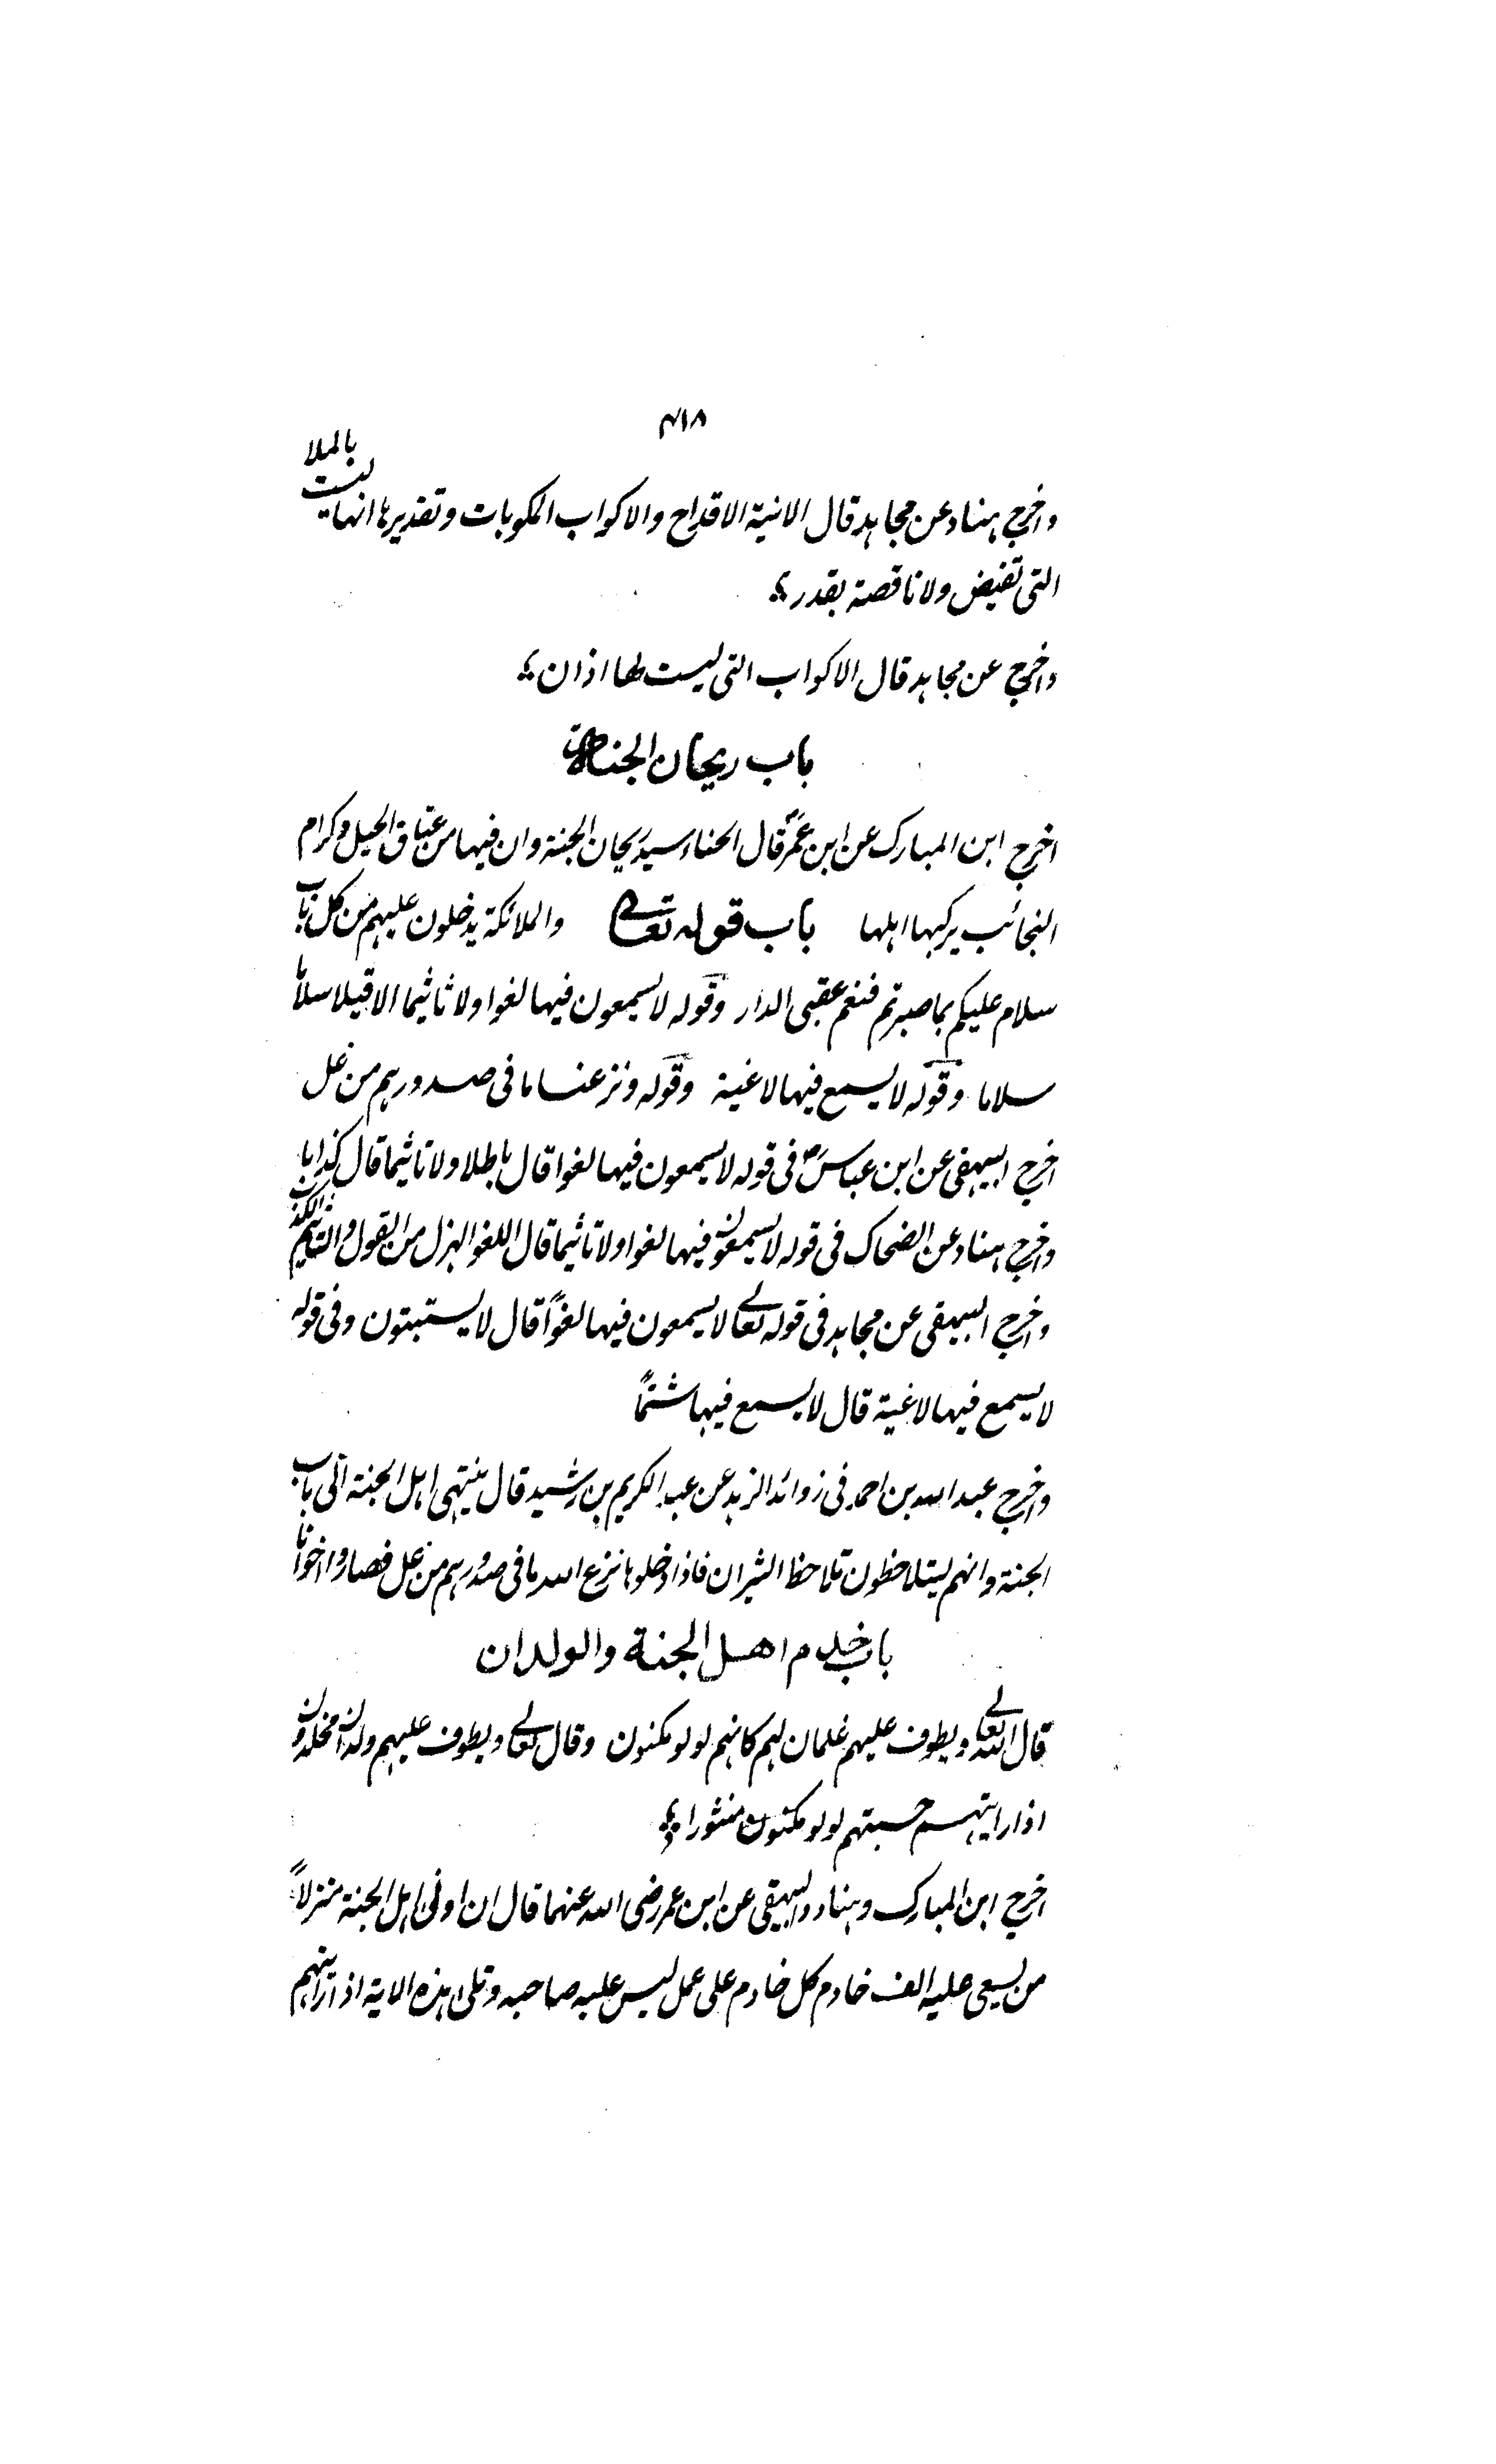 ٤١٨
واخرج هناد عن مجاهد قال الانية الاقداح والاكواب المكوبات وتقديرها انها ليست بالملا
التى تفيض ولا ناقصة بقدر
واخرج عن مجاهد قال الاكواب التى ليست لها اذان
باب ريحان الجنة
اخرج ابن المبارك عن ابن عمر قال الحناء سيد ريحان الجنة وان فيها من عتاق الخيل وكرام
النجائب يركبها اهلها باب قوله تعالى والملائكة يدخلون عليهم من كل باب
سلام عليكم بما صبرتم فنعم عقبى الدار وقوله لا يسمعون فيها لغوا ولا تاثيما الا قيلا سلاما
سلاما وقوله لا يسمع فيها لاغية وقوله ونزعنا ما فى صدورهم من غل
اخرج البيهقى عن ابن عباس فى قوله لا يسمعون فيها لغوا قال باطلا ولا تاثيما قال كذابا
واخرج هناد عن الضحاك فى قوله لا يسمعون فيها لغوا ولا تاثيما قال اللغو الهزل من القول والتاثيم الكذب
واخرج البيهقى عن مجاهد فى قوله تعالى لا يسمعون فيها لغوًا قال لا يستبتون وفى قوله
لا يسمع فيها لاغية قال لا يسمع فيها شتمًا
واخرج عبد الله بن احمد فى زوائد الزهد عن عبد الكريم بن رشيد قال ينتهى اهل الجنة الى باب
الجنة وانهم ليتلاحظون تلاحظ الثيران فاذا دخلوها نزع الله ما فى صدورهم من غل فصاروا اخوانا
باب خدم اهل الجنة والولدان
قال الله تعالى ويطوف عليهم غلمان لهم كانهم لولو مكنون وقال تعالى ويطوف عليهم ولدان مخلدون
اذا رايتهم حسبتهم لولو مكنون منثورا
اخرج ابن المبارك وهناد والبيهقى عن ابن عمر رضى الله عنهما قال ان ادنى اهل الجنة منزلاً
من يسعى عليه الف خادم كل خادم على عمل ليس عليه صاحبه وتلى هذه الاية اذا رايتهم